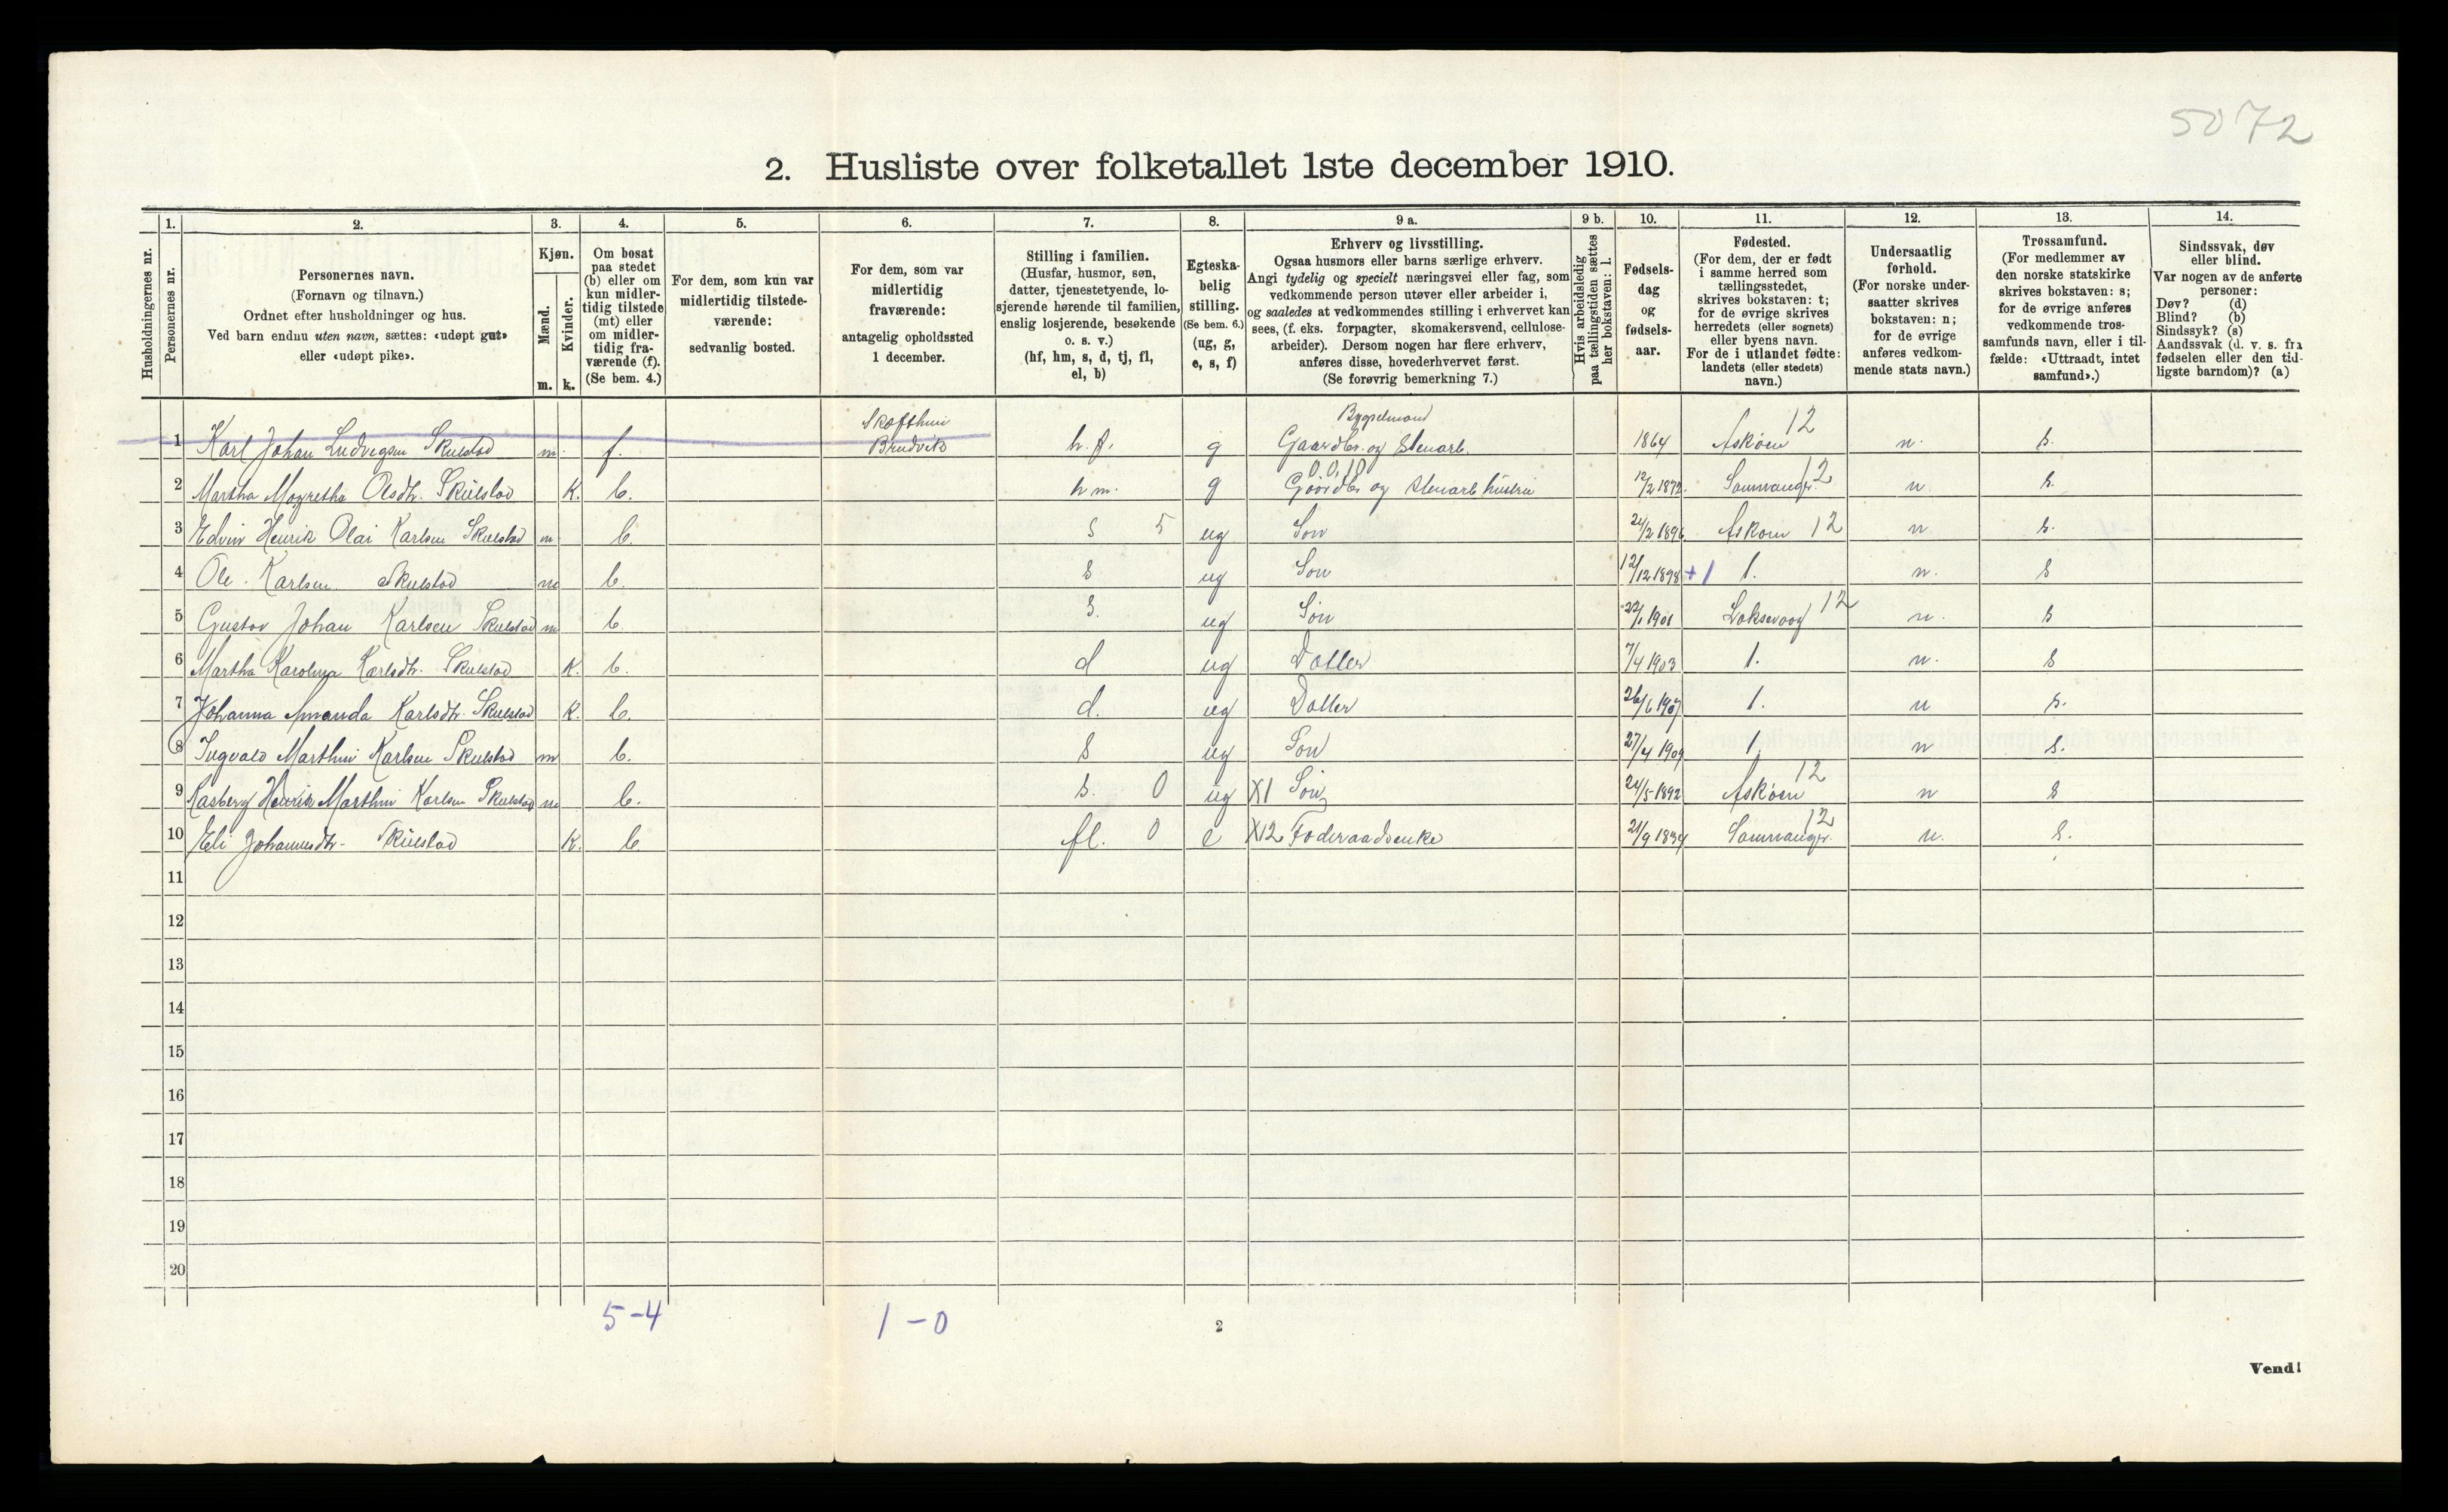 5072
2. Husliste over folketallet 1ste december 1910.
Husholdningernes nr.
1.
Personernes nr.
2.
Personernes navn.
(Fornavn og tilnavn.)
Ordnet efter husholdninger og hus.
Ved barn endnu uten navn, sættes: «udøpt gut»
eller «udøpt pike».
3.
Kjøn.
Mænd.
m.
Kvinder.
k.
4.
Om bosat
paa stedet
(b) eller om
kun midler-
tidig tilstede
(mt) eller
om midler-
tidig fra-
værende (f).
(Se bem. 4.)
5.
For dem, som kun var
midlertidig tilstede-
værende:
sedvanlig bosted.
6.
For dem, som var
midlertidig
fraværende:
antagelig opholdssted
1 december.
7.
Stilling i familien.
(Husfar, husmor, søn,
datter, tjenestetyende, lo-
sjerende hørende til familien,
enslig losjerende, besøkende
o. s. v.)
(hf, hm, s, d, tj, fl,
el, b)
8.
Egteska-
belig
stilling.
(Se bem. 6.)
(ug, g,
e, s, f)
9 a.
Erhverv og livsstilling.
Ogsaa husmors eller barns særlige erhverv.
Angi tydelig og specielt næringsvei eller fag, som
vedkommende person utøver eller arbeider i,
og saaledes at vedkommendes stilling i erhvervet kan
sees, (f. eks. forpagter, skomakersvend, cellulose-
arbeider). Dersom nogen har flere erhverv,
anføres disse, hovederhvervet først.
(Se forøvrig bemerkning 7.)
9 b.
Hvis arbeidsledig
paa tællingstiden sættes
her bokstaven: l.
10.
Fødsels-
dag
og
fødsels-
aar.
11.
Fødested.
(For dem, der er født
i samme herred som
tællingsstedet,
skrives bokstaven: t;
for de øvrige skrives
herredets (eller sognets)
eller byens navn.
For de i utlandet fødte:
landets (eller stedets)
navn.)
12.
Undersaatlig
forhold.
(For norske under-
saatter skrives
bokstaven: n;
for de øvrige
anføres vedkom-
mende stats navn.)
13.
Trossamfund.
(For medlemmer av
den norske statskirke
skrives bokstaven: s;
for de øvrige anføres
vedkommende tros-
samfunds navn, eller i til-
fælde: «Uttraadt, intet
samfund».)
14.
Sindssvak, døv
eller blind.
Var nogen av de anførte
personer:
Døv? (d)
Blind? (b)
Sindssyk? (s)
Aandssvak (d. v. s. fra
fødselen eller den tid-
ligste barndom)? (a)
Bygselmand 12
1 Karl Johan Ludvigsen Skulstad m. f. Brudvik h.f. g Gaardbr. og Stenarb. 1864 Askøen n. s.
0,0,10 12
2 Martha Magretha Olsdtr. Skulstad K. b. h m. g Gaardbr og Stenarb hustru 12/2 1872. Samnanger. n. s.
3 Edvin Henrik Olai Karlsen Skulstad m b. s 5 ug Søn 24/2 1896 Askøen 12 n s.
4 Ole Karlsen Skulstad m b. s ug Søn 12/12 1898 +1 t. n. s
5 Gustav Johan Karlsen Skulstad m b. s. ug Søn 22/1 1901 Laksevaag 12 n. s
6 Martha Karolina Karlsdtr. Skulstad K. b. d ug Datter 7/4 1903 t. n. s
7 Johanna Amanda Karlsdtr. Skulstad K. b. d. ug Datter 26/6 1907 t. n s.
8 Ingvald Marthin Karlsen Skulstad m b. s ug Søn 27/4 1909 t. n s.
9 Rasberg Henrik Marthin Karlsen Skulstad m b. s. 0 ug X1 Søn 24/5 1892 Askøen 12 n s
10 Eli Johannesdtr. Skulstad K. b fl. 0 e X12 Føderaadsenke 21/9 1834 Samnanger. 12 n. s.
11
12
13
14
15
16
17
18
19
20
5-4
1-0
2
Vend!